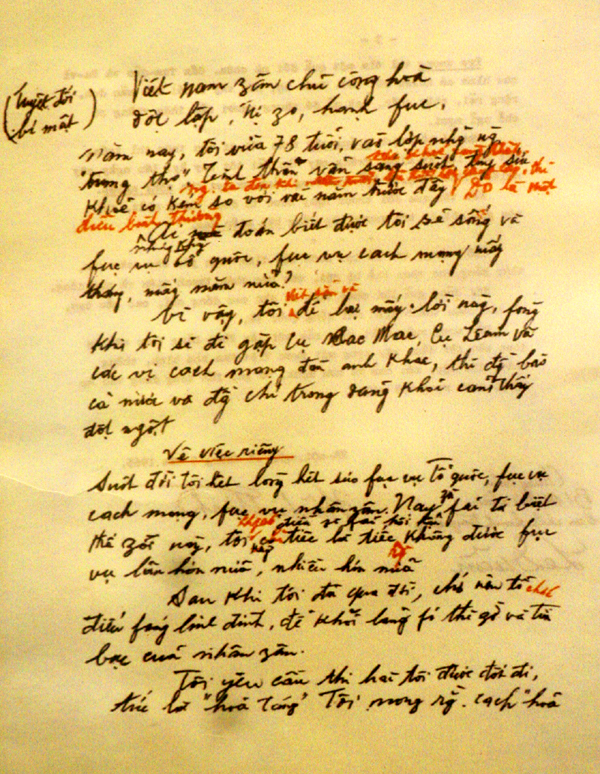 (Tuyệt đối
bí mật)
Việt nam zân chủ cộng hoà
độc lập, tự zo, hạnh fúc.
Năm nay, tôi vừa 78 tuổi, vào lớp những ng
"trung thọ". Tinh thần vẫn sáng suốt, tuy sức
khoẻ có kém so với vài năm trước đây. Đó là một
điều bình thường.
Ai mà đoán biết được tôi sẽ sống và
fục vụ tổ quốc, fục vụ cách mạng mấy
tháng, mấy năm nữa?
Vì vậy, tôi viết sẵn và để lại mấy lời này, fòng
khi tôi sẽ đi gặp cụ Các Mác, Cụ Lenin và
các vị cách mạng đàn anh khác, thì đ/b
cả nước và đ/c trong đảng khỏi cảm thấy
đột ngột
Về việc riêng
Suốt đời tôi hết lòng hết sức fục vụ tổ quốc, fục vụ
cách mạng, fục vụ nhân zân. Nay zù fải từ biệt
thế zới này, tôi không có điều gì fải hối hận, chỉ tiếc là tiếc không được fục
vụ lâu hơn nữa, nhiều hơn nữa
Sau khi tôi đã qua đời, chớ nên tổ chức
điếu fúng linh đình, để khỏi lãng fí thì zờ và tiền
bạc của nhân zân.
Tôi yêu cầu thi hài tôi được đốt đi,
tức là "hoả táng". Tôi mong rằng cách "hoả